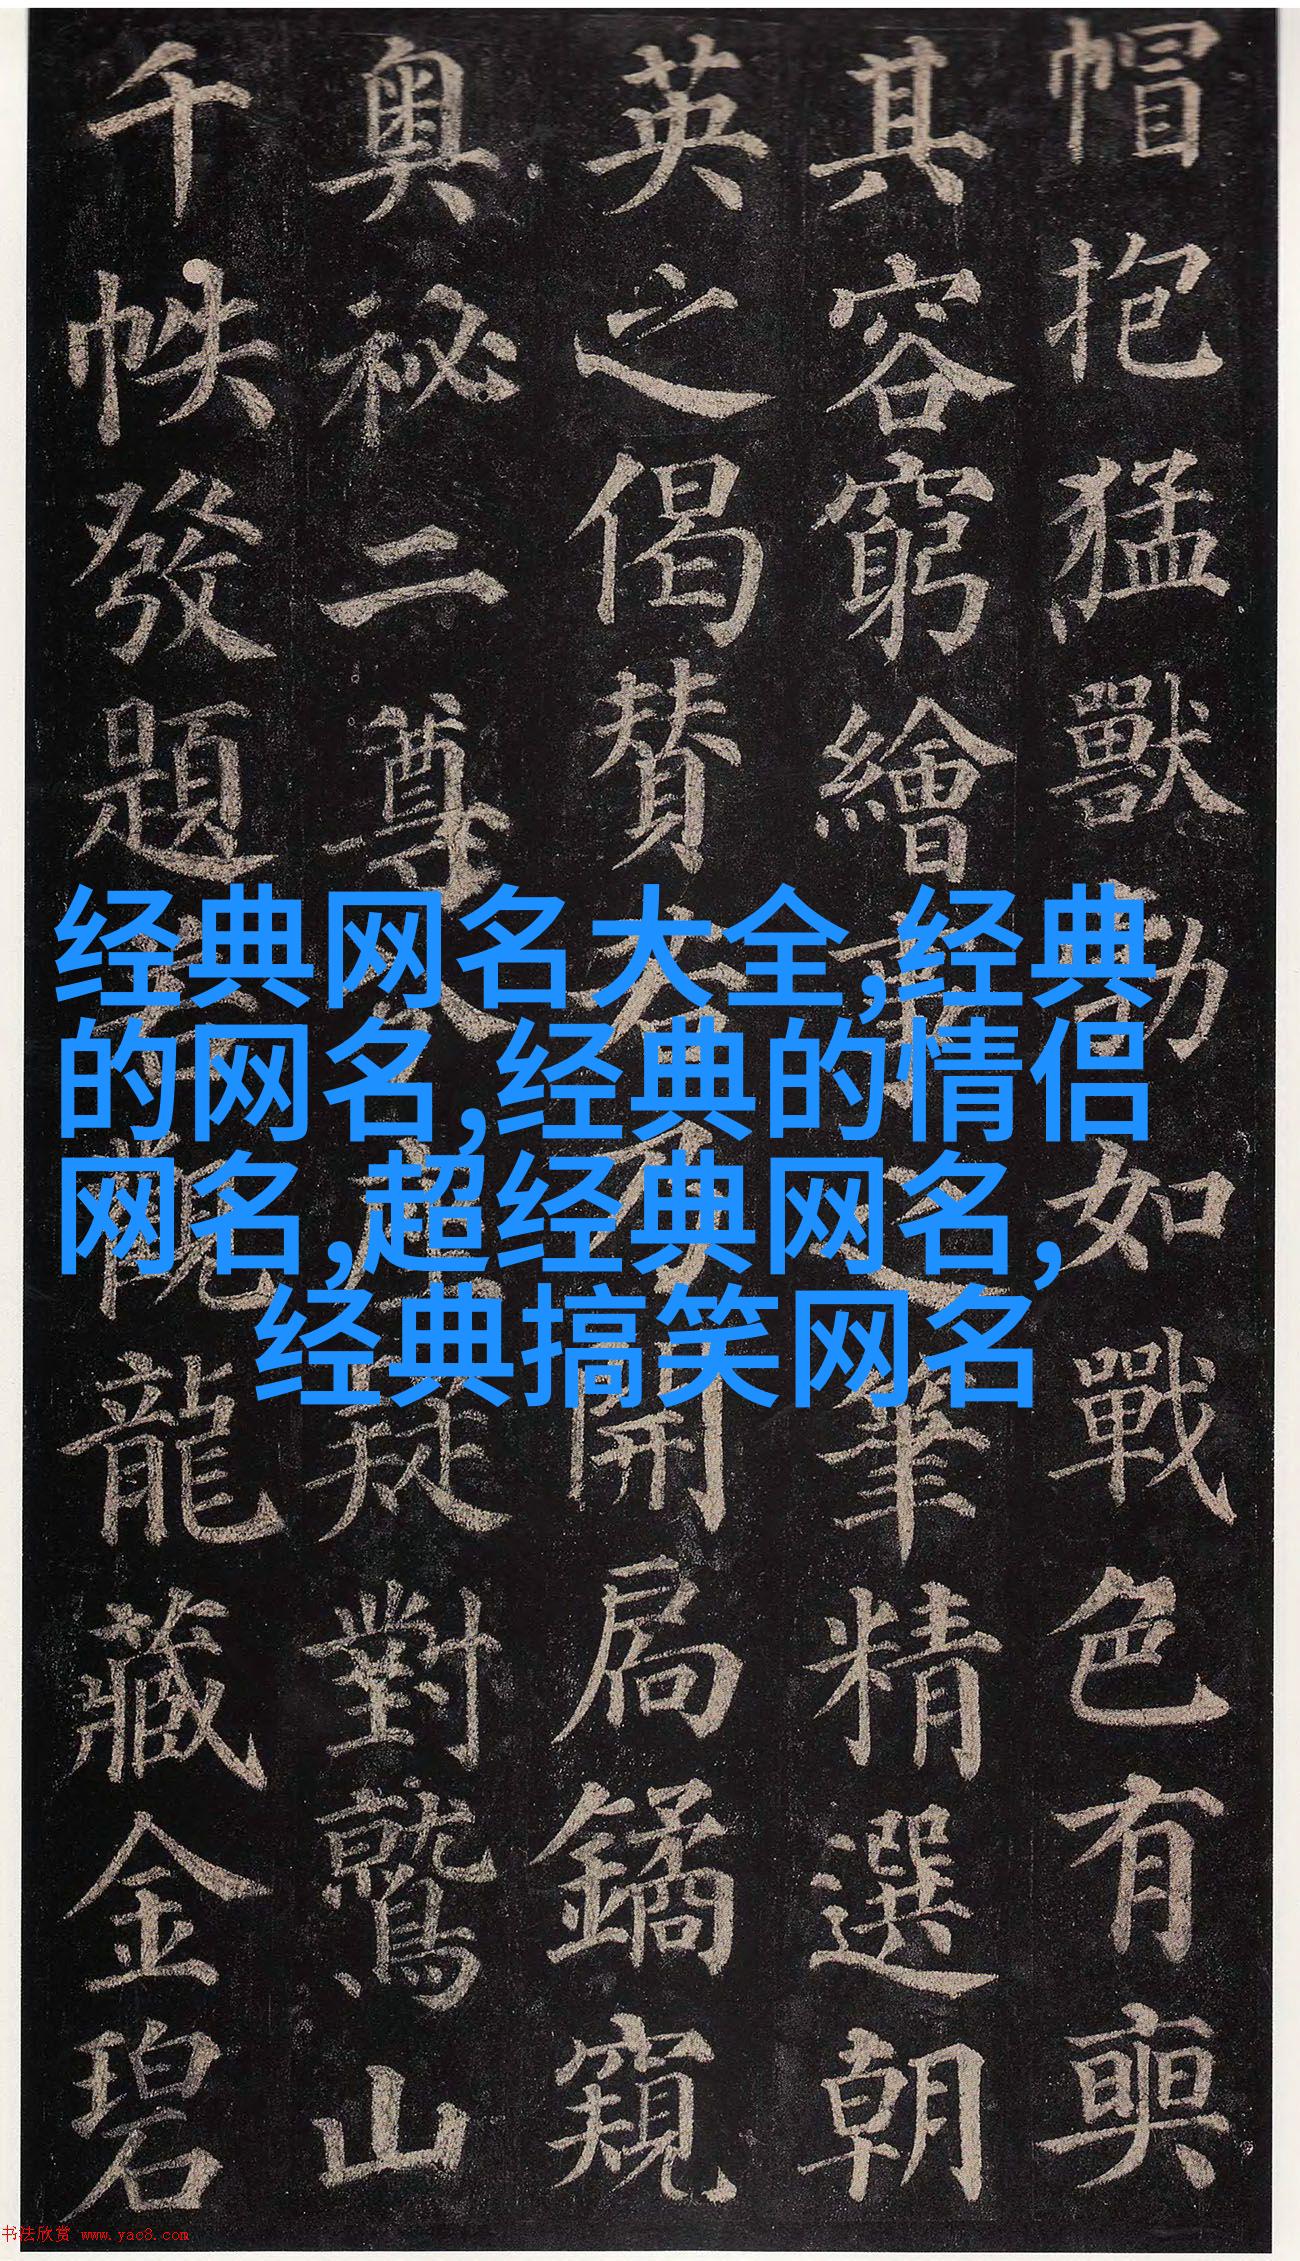 帽抱猛獸勃如戰色有奭
其容窮繪事之筆精選朝
英之偈贊若乃開扃鐍窺
奧祕二尊分座疑對鷲山
千帙發題若觀龍藏金碧
经典网名大全,经典
的网名,经典的情侣
网名,超经典网名,
经典搞笑网名
书法欣赏 www.yac8.com